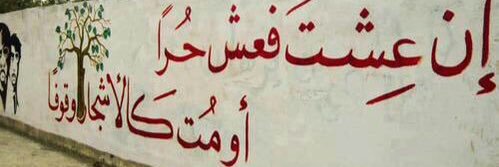 إن عِشتَ فعش حُراً
أو مُت كَالأشجار وقوفًا